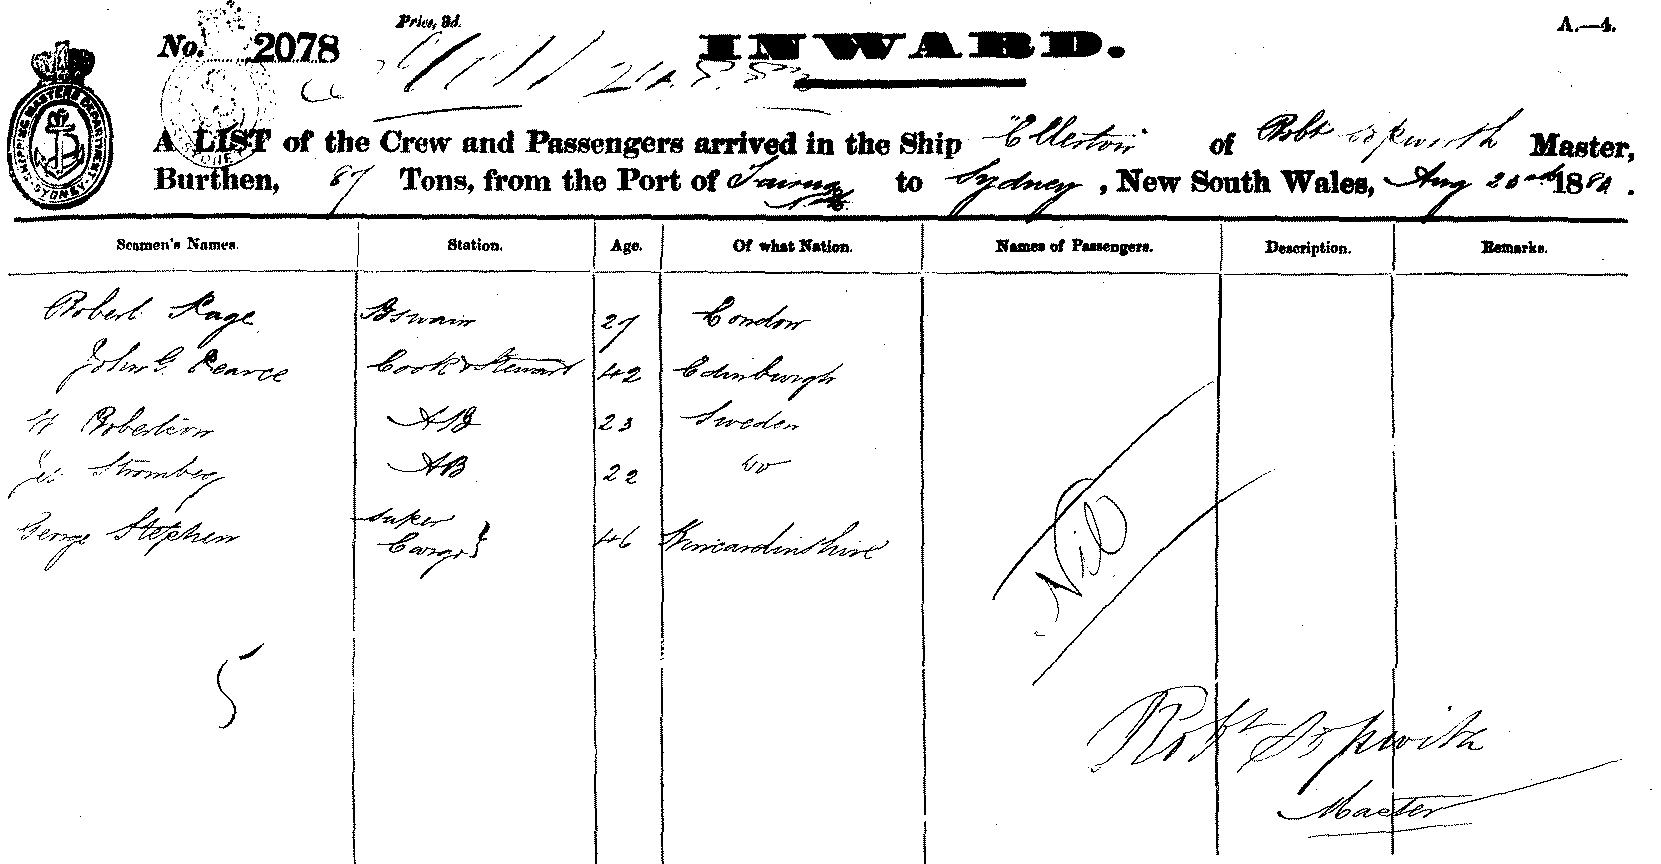 Price, 3d.
A.—4.
No. 2078
INWARD.
SHIPPING MASTERS DEPARTMENT SYDNEY
A LIST of the Crew and Passengers arrived in the Ship "Ellerton" of Robt Sopwith Master,
Burthen, 87 Tons, from the Port of to Sydney, New South Wales, Aug 188
Seamen's Names. Station. Age. Of what Nation. Names of Passengers. Description. Remarks.
Robert Page Bswain 27 London
John G. Pearce Cook & Steward 42 Edinburgh
Robertson AB 23 Sweden
Stromberg AB 22 Do
George Stephen Super Cargo } 46 Kincardinshire
Nil
5
Robt Sopwith
Master